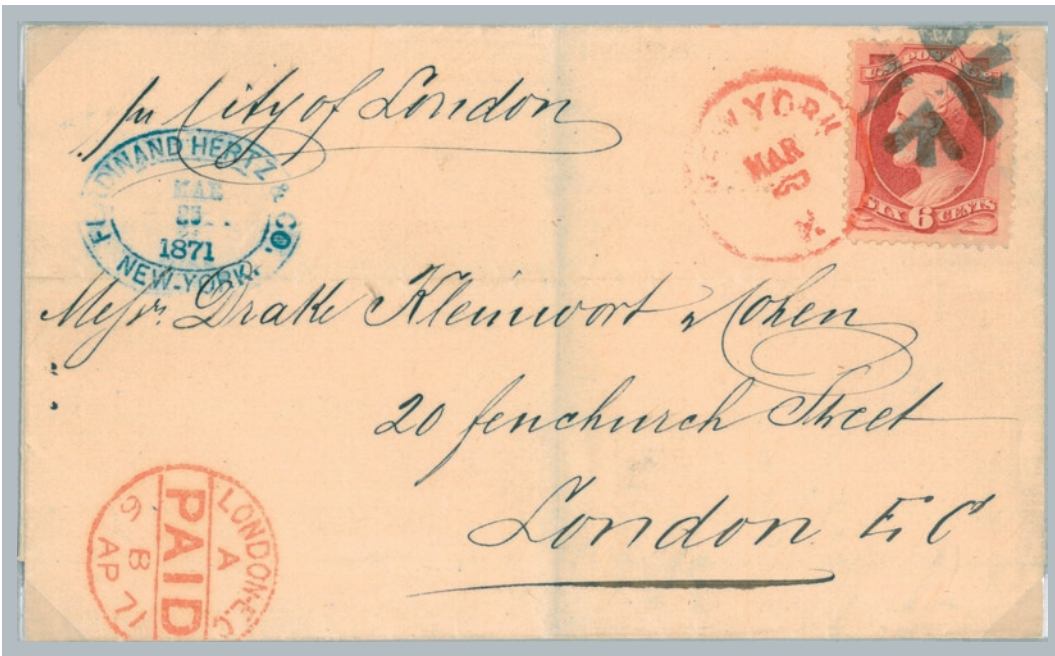 pr City of London
FERDINAND HERTZ & CO.
MAR
1871
NEW-YORK.
NEW YORK
MAR
U.S. POSTAGE
SIX 6 CENTS
Messrs. Drake Kleinwort & Cohen
20 fenchurch Street
London E C
LONDON-E.C
A
PAID
B
AP 71